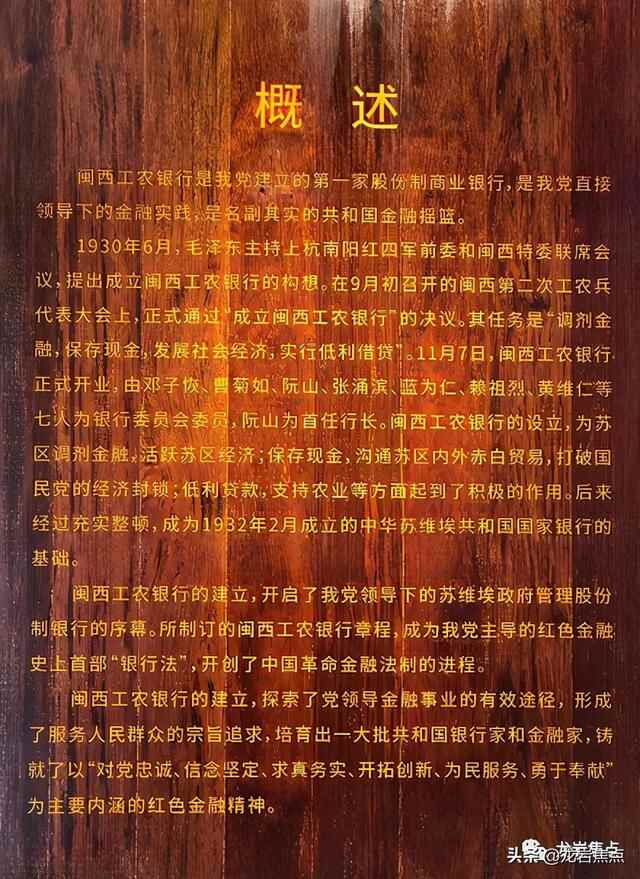 概 述
闽西工农银行是我党建立的第一家股份制商业银行,是我党直接
领导下的金融实践,是名副其实的共和国金融摇篮。
1930年6月,毛泽东主持上杭南阳红四军前委和闽西特委联席会
议,提出成立闽西工农银行的构想。在9月初召开的闽西第二次工农兵
代表大会上,正式通过“成立闽西工农银行”的决议。其任务是“调剂金
融,保存现金,发展社会经济,实行低利借贷”。11月7日,闽西工农银行
正式开业,由邓子恢、曹菊如、阮山、张涌滨、蓝为仁、赖祖烈、黄维仁等
七人为银行委员会委员,阮山为首任行长。闽西工农银行的设立,为苏
区调剂金融,活跃苏区经济;保存现金,沟通苏区内外赤白贸易,打破国
民党的经济封锁;低利贷款,支持农业等方面起到了积极的作用。后来
经过充实整顿,成为1932年2月成立的中华苏维埃共和国国家银行的
基础。
闽西工农银行的建立,开启了我党领导下的苏维埃政府管理股份
制银行的序幕。所制订的闽西工农银行章程,成为我党主导的红色金融
史上首部“银行法”,开创了中国革命金融法制的进程。
闽西工农银行的建立,探索了党领导金融事业的有效途径,形成
了服务人民群众的宗旨追求,培育出一大批共和国银行家和金融家,铸
就了以“对党忠诚、信念坚定、求真务实、开拓创新、为民服务、勇于奉献”
为主要内涵的红色金融精神。
龙岩焦点
头条@龙岩焦点